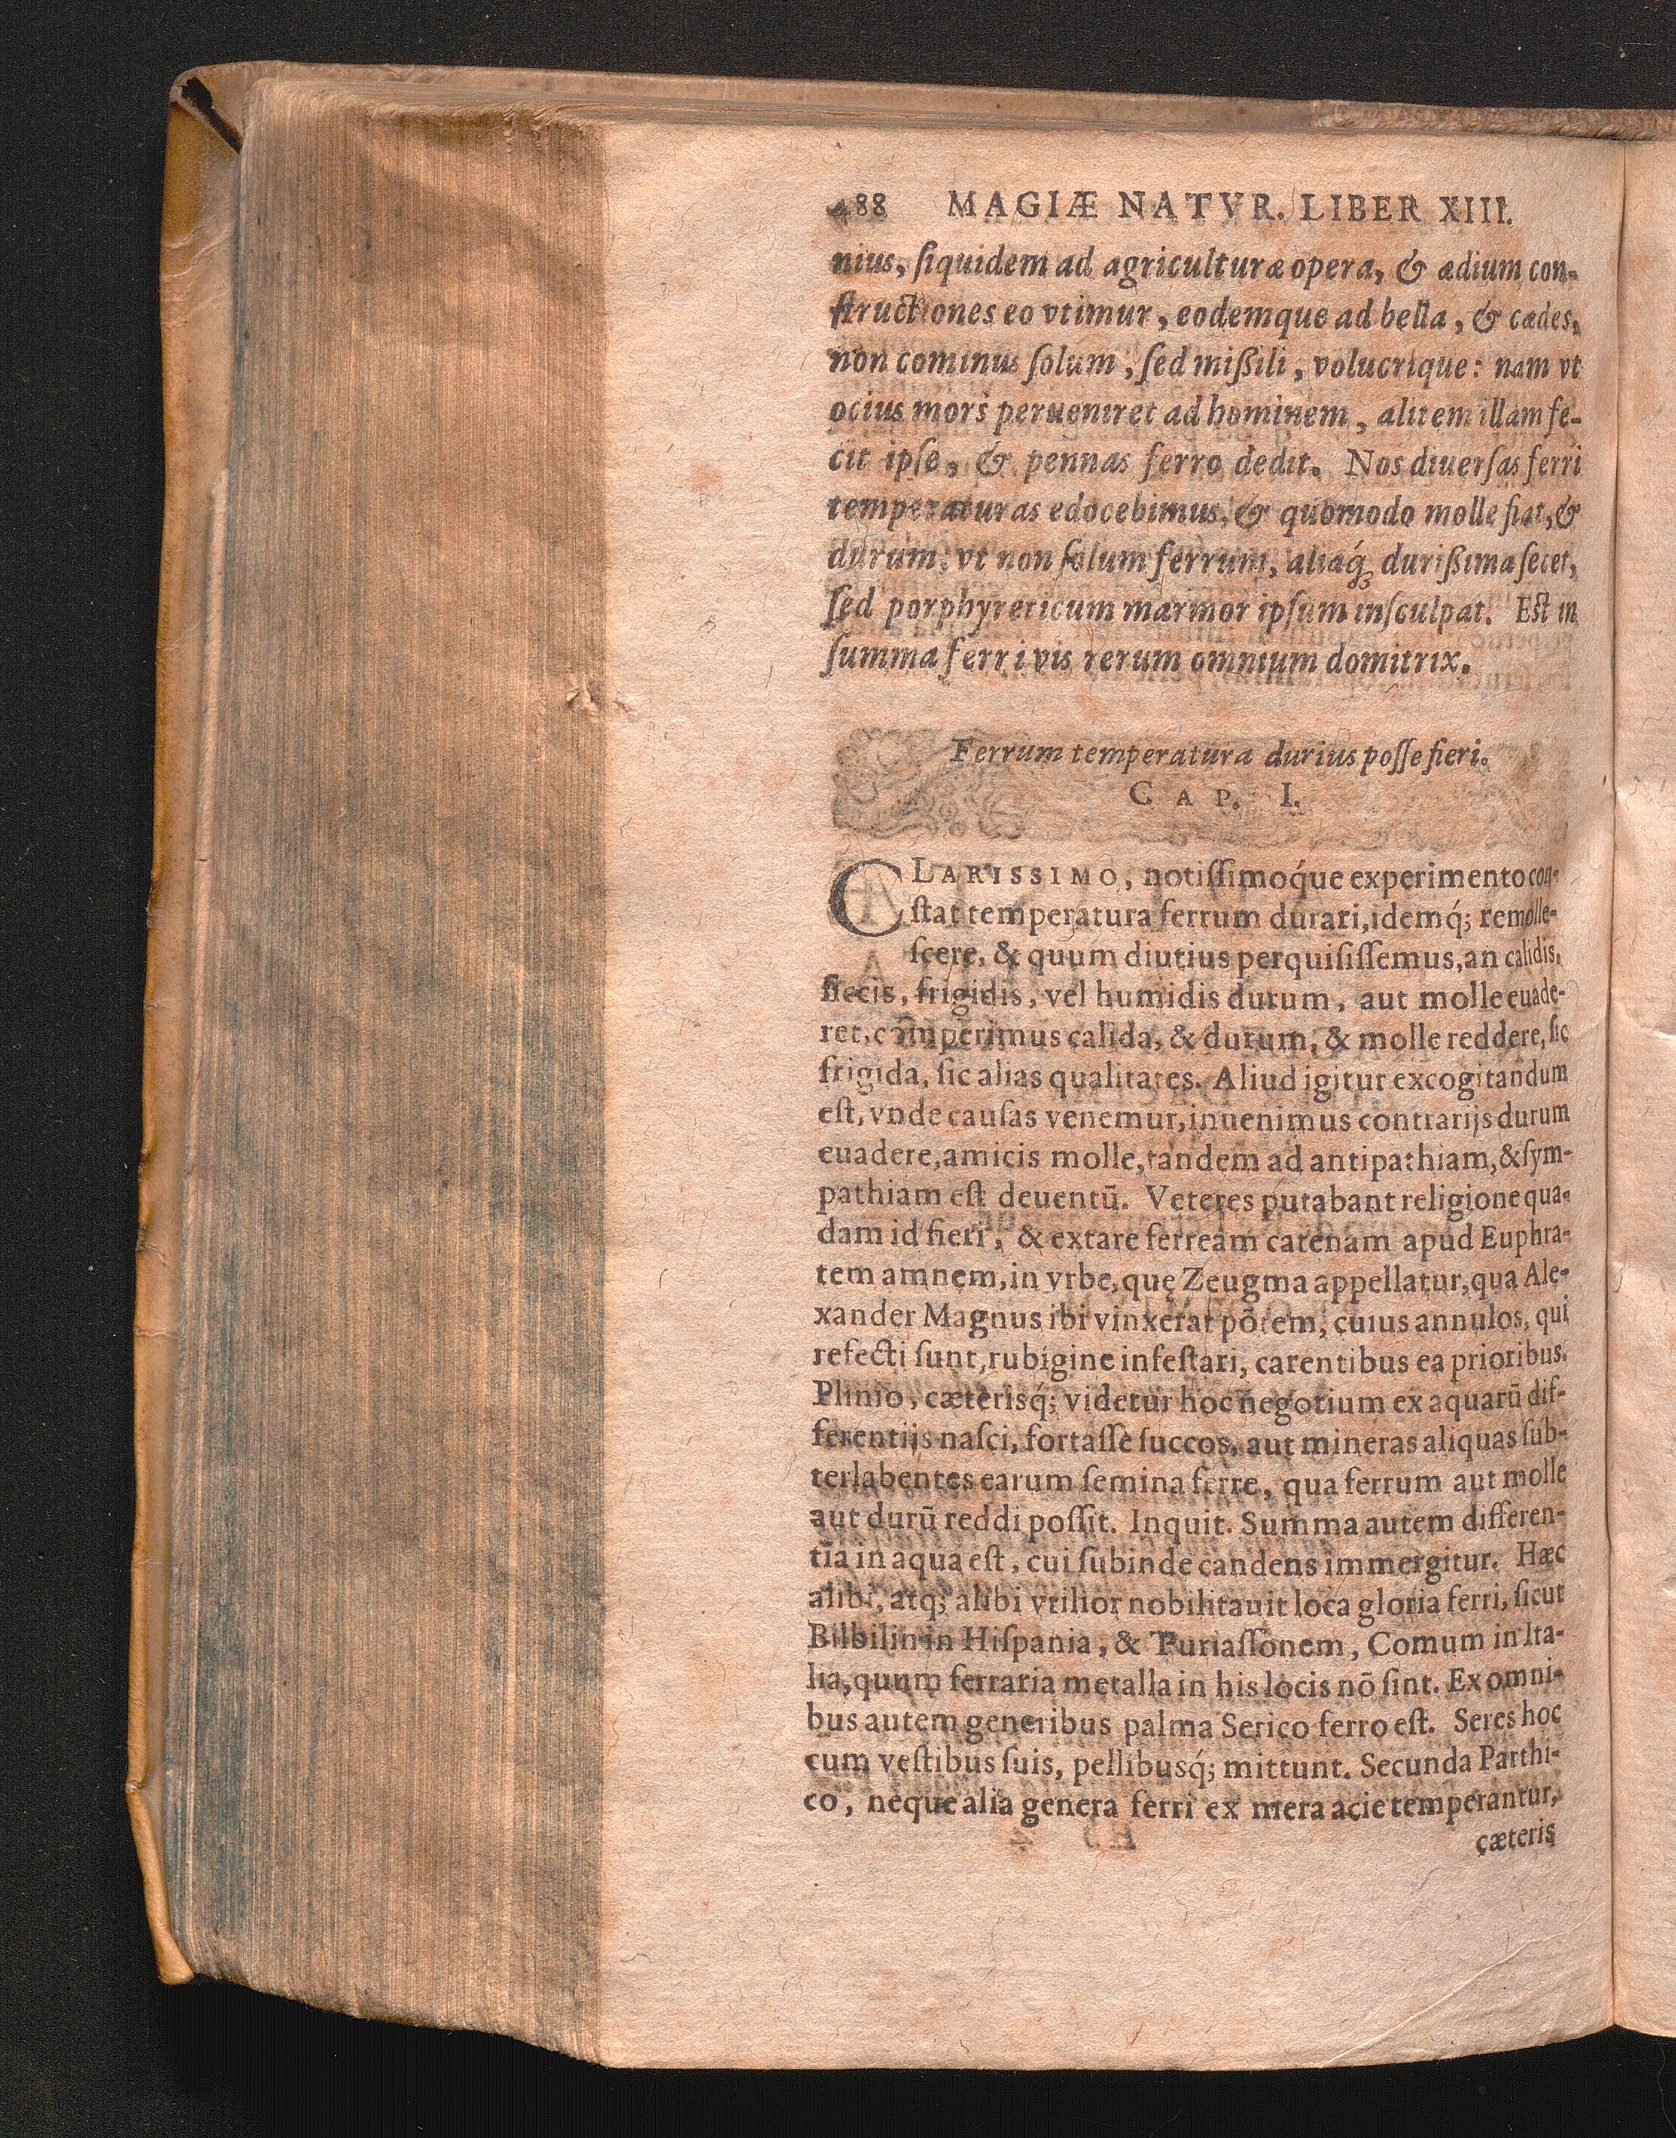 488 MAGIÆ NATVR. LIBER XIII.
nius, ſiquidem ad agriculturæ opera, & ædium con-
ſtructiones eo vtimur, eodemque ad bella, & cædes,
non cominus ſolum, ſed mißili, volucrique: nam vt
ocius mors perueniret ad hominem, alitem illam fe-
cit ipſe, & pennas ferro dedit. Nos diuerſas ferri
temperaturas edocebimus, & quomodo molle fiat, &
durum, vt non ſolum ferrum, aliaq́ꝫ durißima ſecet,
ſed porphyreticum marmor ipſum inſculpat. Eſt in
ſumma ferri vis rerum omnium domitrix.
Ferrum temperatura durius poſſe fieri.
CAP. I.
CLARISSIMO, notiſſimoq́ue experimento con-
ſtat temperatura ferrum durari, idemq́; remolle-
ſcere, & quum diutius perquiſiſſemus, an calidis,
ſiecis, frigidis, vel humidis durum, aut molle euade-
ret, comperimus calida, & durum, & molle reddere, ſic
frigida, ſic alias qualitates. Aliud igitur excogitandum
eſt, vnde cauſas venemur, inuenimus contrarijs durum
euadere, amicis molle, tandem ad antipathiam, & ſym-
pathiam eſt deuentū. Veteres putabant religione qua-
dam id fieri, & extare ferream catenam apud Euphra-
tem amnem, in vrbe, quę Zeugma appellatur, qua Ale-
xander Magnus ibi vinxerat põtem, cuius annulos, qui
refecti ſunt, rubigine infeſtari, carentibus ea prioribus.
Plinio, cæterisq́; videtur hoc negotium ex aquarū dif-
ferentijs naſci, fortaſſe ſuccos, aut mineras aliquas ſub-
terlabentes earum ſemina ferre, qua ferrum aut molle
aut durū reddi poſſit. Inquit. Summa autem differen-
tia in aqua eſt, cui ſubinde candens immergitur. Hæc
alibi, atq; alibi vtilior nobilitauit loca gloria ferri, ſicut
Bilbilin in Hiſpania, & Turiaſſonem, Comum in Ita-
lia, quum ferraria metalla in his locis nõ ſint. Ex omni-
bus autem generibus palma Serico ferro eſt. Seres hoc
cum veſtibus ſuis, pellibusq́; mittunt. Secunda Parthi-
co, neque alia genera ferri ex mera acie temperantur,
cæteris